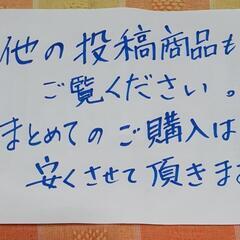 他の投稿商品も
ご覧ください。
まとめてのご購入は
安くさせて頂きま